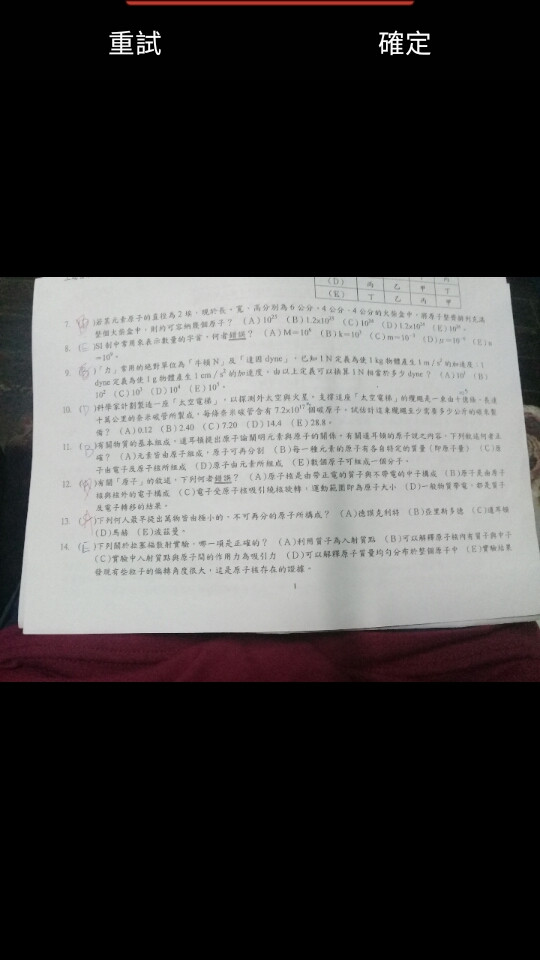 重試 確定
(D) 丙 乙
(E) 丁 乙 丙 甲
7. )若某元素原子的直徑為2埃,現於長、寬、高分別為6公分、4公分、4公分的火柴盒中,將原子整齊排列充滿
整個火柴盒中,則約可容納幾個原子? (A)10²³ (B)1.2x10²³ (C)10²⁴ (D)1.2x10²⁴ (E)10²⁵。
8. )SI制中常用來表示數量的字首,何者錯誤? (A)M=10⁶ (B)k=10³ (C)m=10⁻³ (D)n=10⁻⁹ (E)
=10⁹。
9. )「力」常用的絕對單位為「牛頓N」及「達因dyne」,已知1N定義為使1kg物體產生1m/s²的加速度,1
dyne定義為使1g物體產生1cm/s²的加速度。由以上定義可以換算1N相當於多少dyne? (A)10¹ (B)
10² (C)10³ (D)10⁴ (E)10⁵。
10. )科學家計劃製造一座「太空電梯」,以探測外太空與火星,支撐這座「太空電梯」的纜繩是一束由十億條、長達
十萬公里的奈米碳管所製成,每條奈米碳管含有7.2x10¹⁷個碳原子,試估計這束纜繩至少需要多少公斤的碳來製
備? (A)0.12 (B)2.40 (C)7.20 (D)14.4 (E)28.8。
11. )有關物質的基本組成,道耳頓提出原子論闡明元素與原子的關係。有關道耳頓的原子說之內容,下列敘述何者正
確? (A)元素皆由原子組成,原子可再分割 (B)每一種元素的原子有各自特定的質量(即原子量) (C)原
子由電子及原子核所組成 (D)原子由元素所組成 (E)數個原子可組成一個分子。
12. )有關「原子」的敘述,下列何者錯誤? (A)原子核是由帶正電的質子與不帶電的中子構成 (B)原子是由原子
核與核外的電子構成 (C)電子受原子核吸引繞核旋轉,運動範圍即為原子大小 (D)一般物質帶電,都是質子
及電子轉移的結果。
13. )下列何人最早提出萬物皆由極小的、不可再分的原子所構成? (A)德謨克利特 (B)亞里斯多德 (C)道耳頓
(D)馬赫 (E)波茲曼。
14. (E)下列關於拉塞福散射實驗,哪一項是正確的? (A)利用質子為入射質點 (B)可以解釋原子核內有質子與中子
(C)實驗中入射質點與原子間的作用力為吸引力 (D)可以解釋原子質量均勻分布於整個原子中 (E)實驗結果
發現有些粒子的偏轉角度很大,這是原子核存在的證據。
1